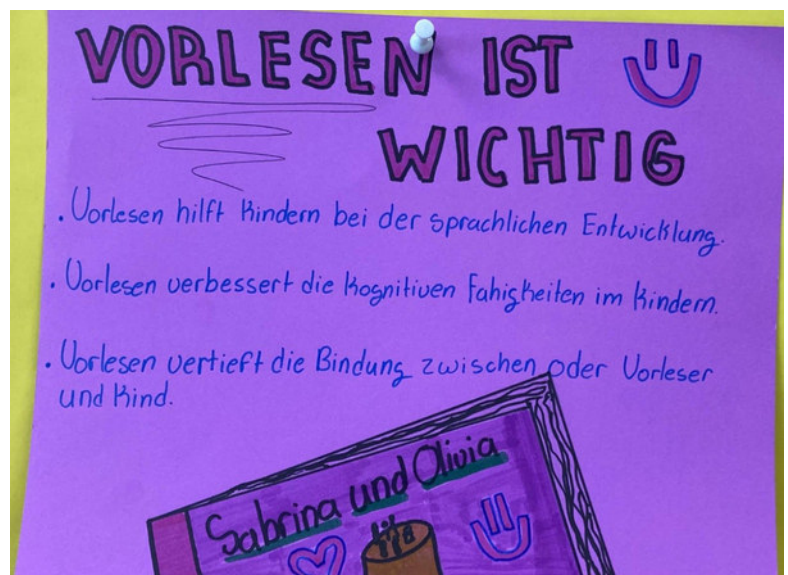 VORLESEN IST
WICHTIG
. Vorlesen hilft Kindern bei der sprachlichen Entwicklung.
. Vorlesen verbessert die Kognitiven Fahigkeiten im Kindern.
. Vorlesen vertieft die Bindung zwischen oder Vorleser
und Kind.
Sabrina und Olivia